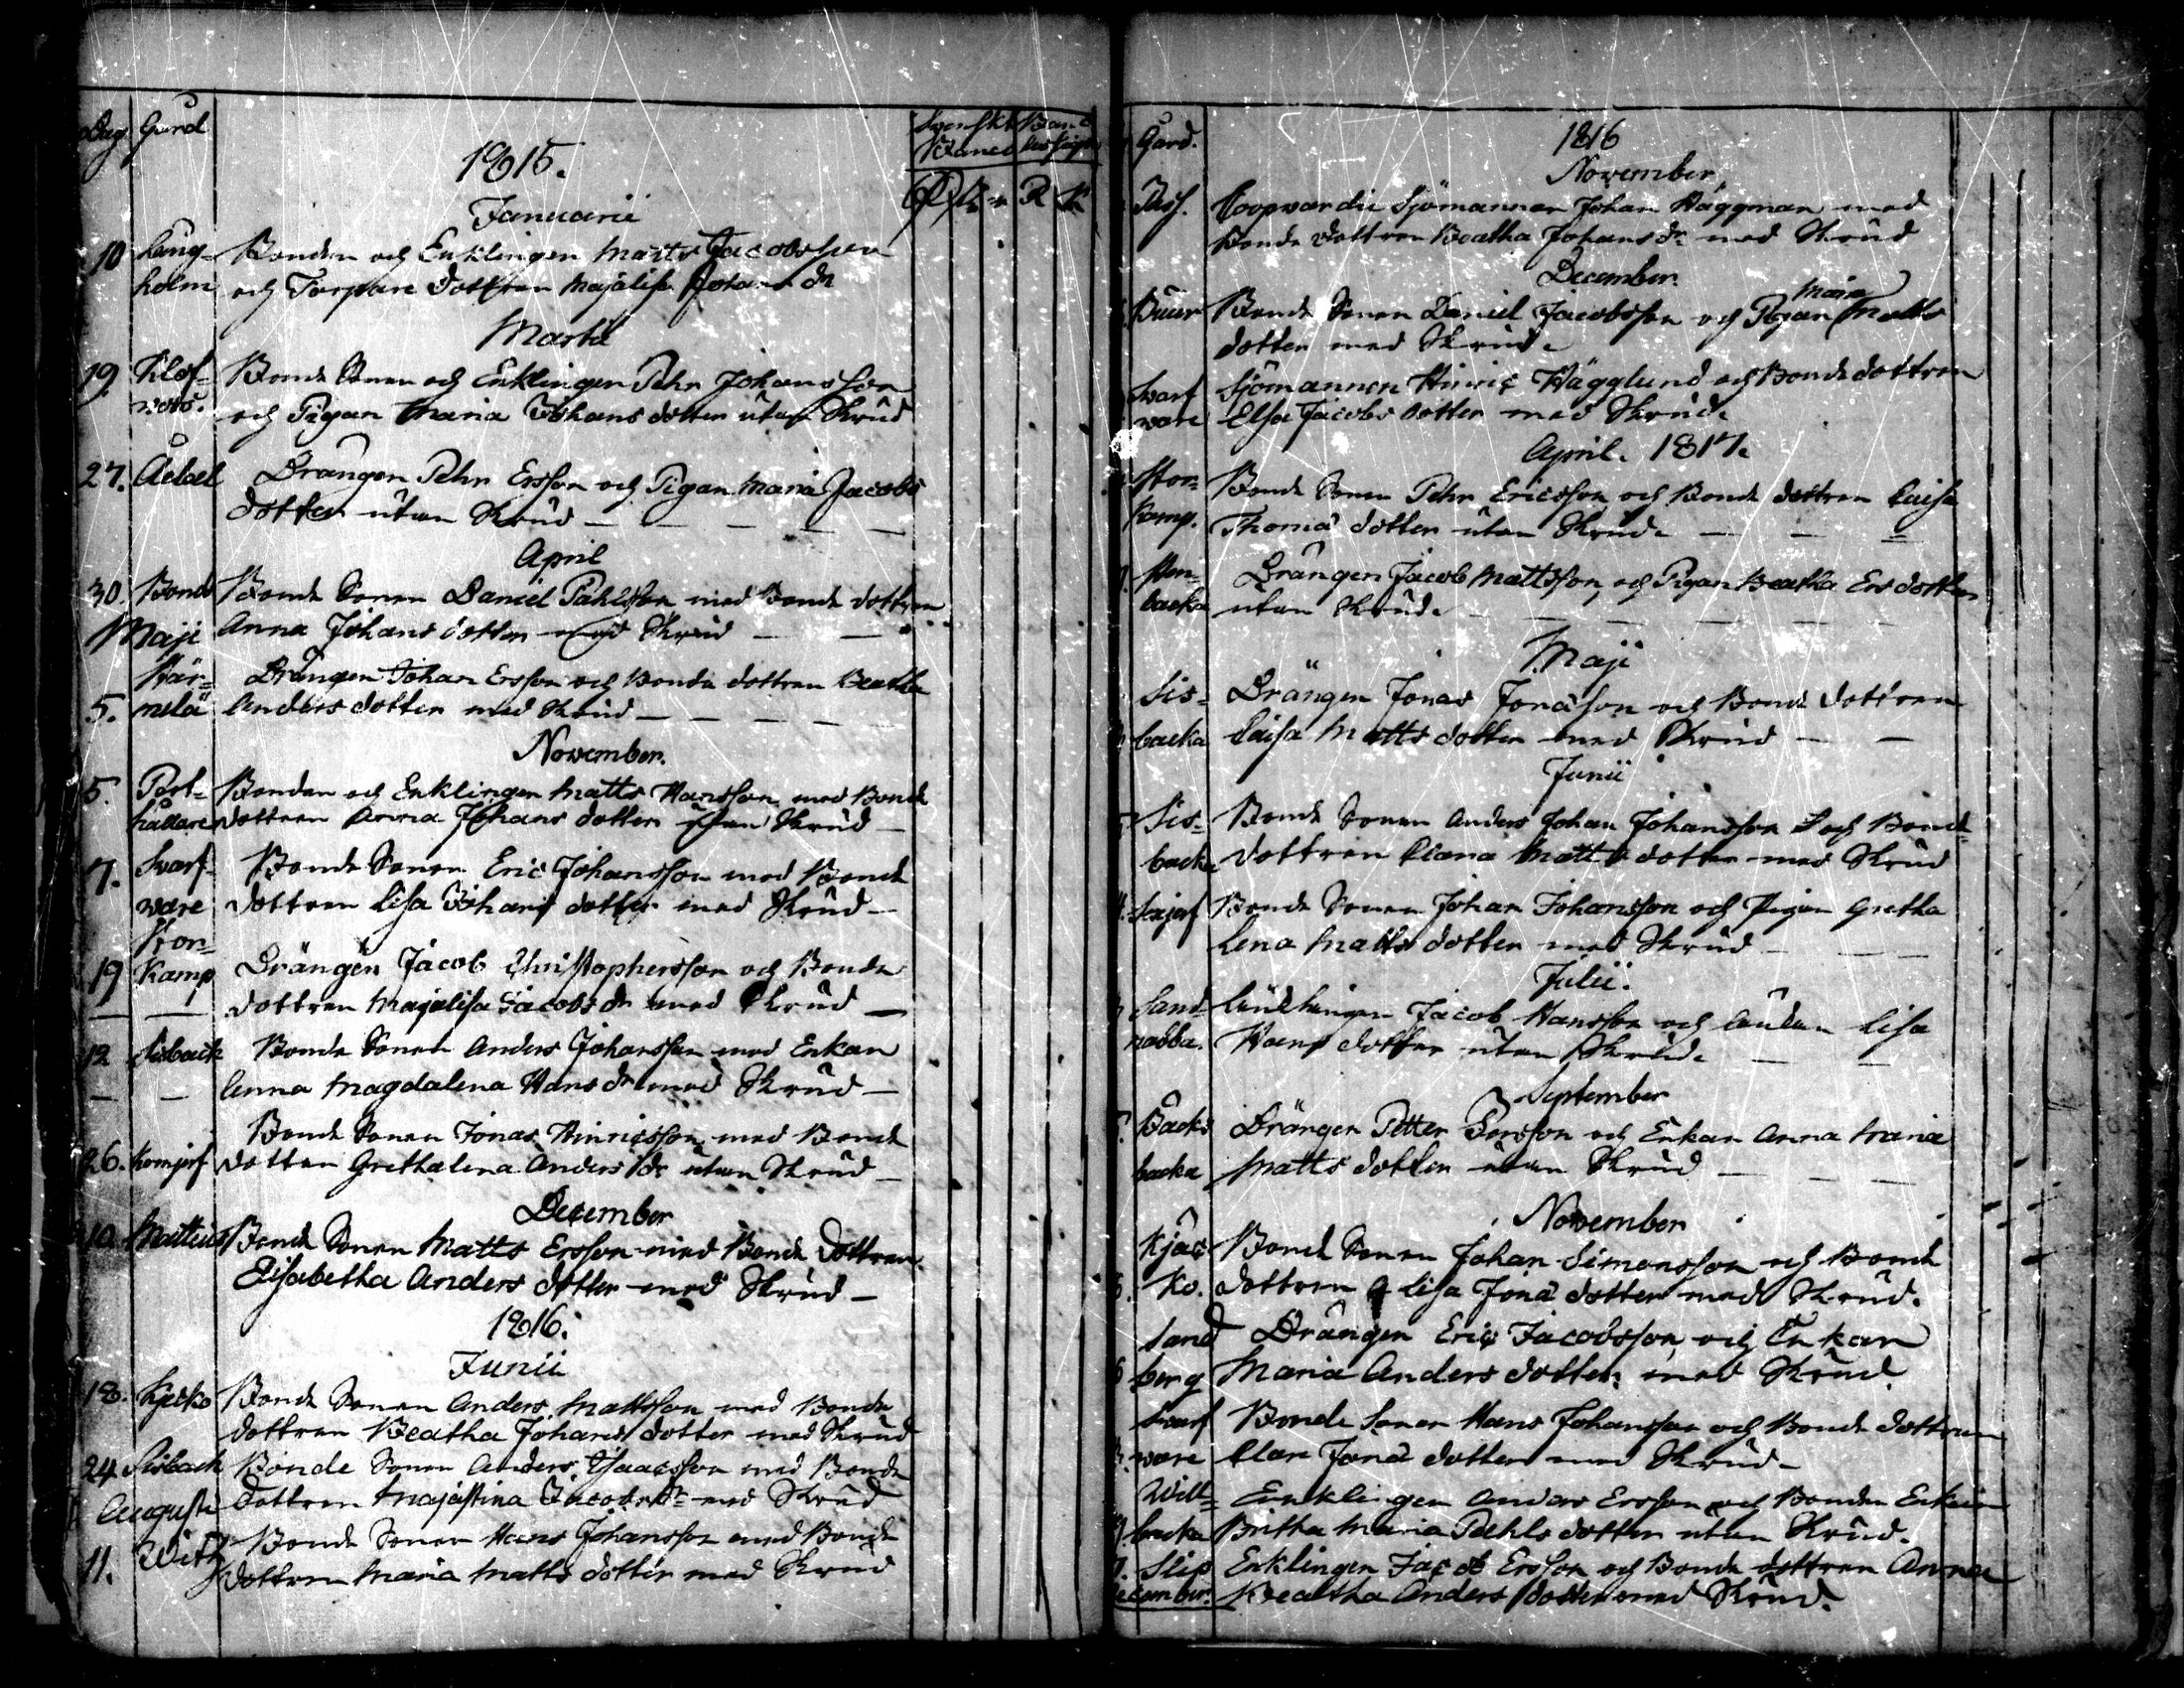 Dag Gård
Svenskt Banco
1815.
Januarii
10 Lång- Bonden och Enklingen Matts Jacobsson
holm och Torpare dottren Majalisa Johans dr
Martii
19. Klof- Bonde Sonen och Enklingen Pehr Johansson
och Pigan Maria Johans dotter utan Skrud
27. Drängen Pehr Ersson och Pigan Maria Jacobs
dotter utan Skrud
April
30. Bonds Bonde Sonen Daniel Påhlsson med Bonde dottren
Maji Anna Johans dotter med Skrud
Här- Drängen Johan Ersson och Bonde dottren Beatha
5. melä Anders dotter med Skrud
November.
5. Post- Bonden och Enklingen Matts Hansson med Bonde
hållare dottren Anna Johans dotter utan Skrud
7. Svarf- Bonde Sonen Eric Johansson med Bonde
vare dottren Lisa Johans dotter med Skrud
Stor-
19 Kamp Drängen Jacob Christophersson och Bonde
dottren Majalisa Jacobs dr med Skrud
12 Sisback Bonde Sonen Anders Johansson med Enkan
Anna Magdalena Hans dr med Skrud
Bonde Sonen Jonas Hinricsson med Bonde
26. dottren Grethalena Anders dr utan Skrud
December
10. Matteus Bonde Sonen Matts Ersson med Bonde dottren
Elisabetha Anders dotter med Skrud
1816.
Junii
18. Kjecko Bonde Sonen Anders Mattsson med Bonde
dottren Beatha Johans dotter med Skrud
24 Sisback Bonde Sonen Anders Isaacsson med Bonde
Augusti dottren Majastina Jacobs dr med Skrud
Bonde Sonen Hans Johansson med Bonde
11. Witz dottren Maria Matts dotter med Skrud
Gård. 1816
November
Coopvardie Sjömannen Johan Häggman med
Bonde dottren Beatha Johans dr med Skrud
December.
Maria
Buur Bonde Sonen Daniel Jacobsson och Pigan Matts
dotter med Skrud.
Svarf Sjömannen Hinric Hägglund och Bonde dottren
vare Elsa Jacobs dotter med Skrud.
April. 1817.
Stor- Bonde Sonen Pehr Ericsson och Bonde dottren Caisa
kamp. Thomæ dotter utan Skrud.
Sten- Drängen Jacob Mattsson och Pigan Beatha Ers dotter
backa utan Skrud.
Maji
Sis- Drängen Jonas Jonasson och Bonde dottren
backa Caisa Matts dotter med Skrud
Junii
Sis- Bonde Sonen Anders Johan Johansson och Bonde
backa dottren Clara Matts dotter med Skrud
Bonde Sonen Johan Johansson och Pigan Gretha
Lena Matts dotter med Skrud
Julii.
Sand Jacob Hansson och Lisa
nabba. Hans dotter utan Skrud.
September
Backs Drängen Petter Persson och Enkan Anna Maria
backa Matts dotter utan Skrud
November
Kjäc Bonde Sonen Johan Simonsson och Bonde
ko. dottren Lisa Jonæ dotter med Skrud.
Sand Drängen Eric Jacobsson och Enkan
berg Maria Anders dotter med Skrud
Svarf Bonde Sonen Hans Johansson och Bonde dottren
vare Clara Jonæ dotter med Skrud.
Will- Enklingen Anders Ersson och Bonde Enkan
backa Britha Maria Pahls dotter utan Skrud.
Slip Enklingen Jacob Ersson och Bonde dottren Anna
December. Beatha Anders dotter med Skrud.